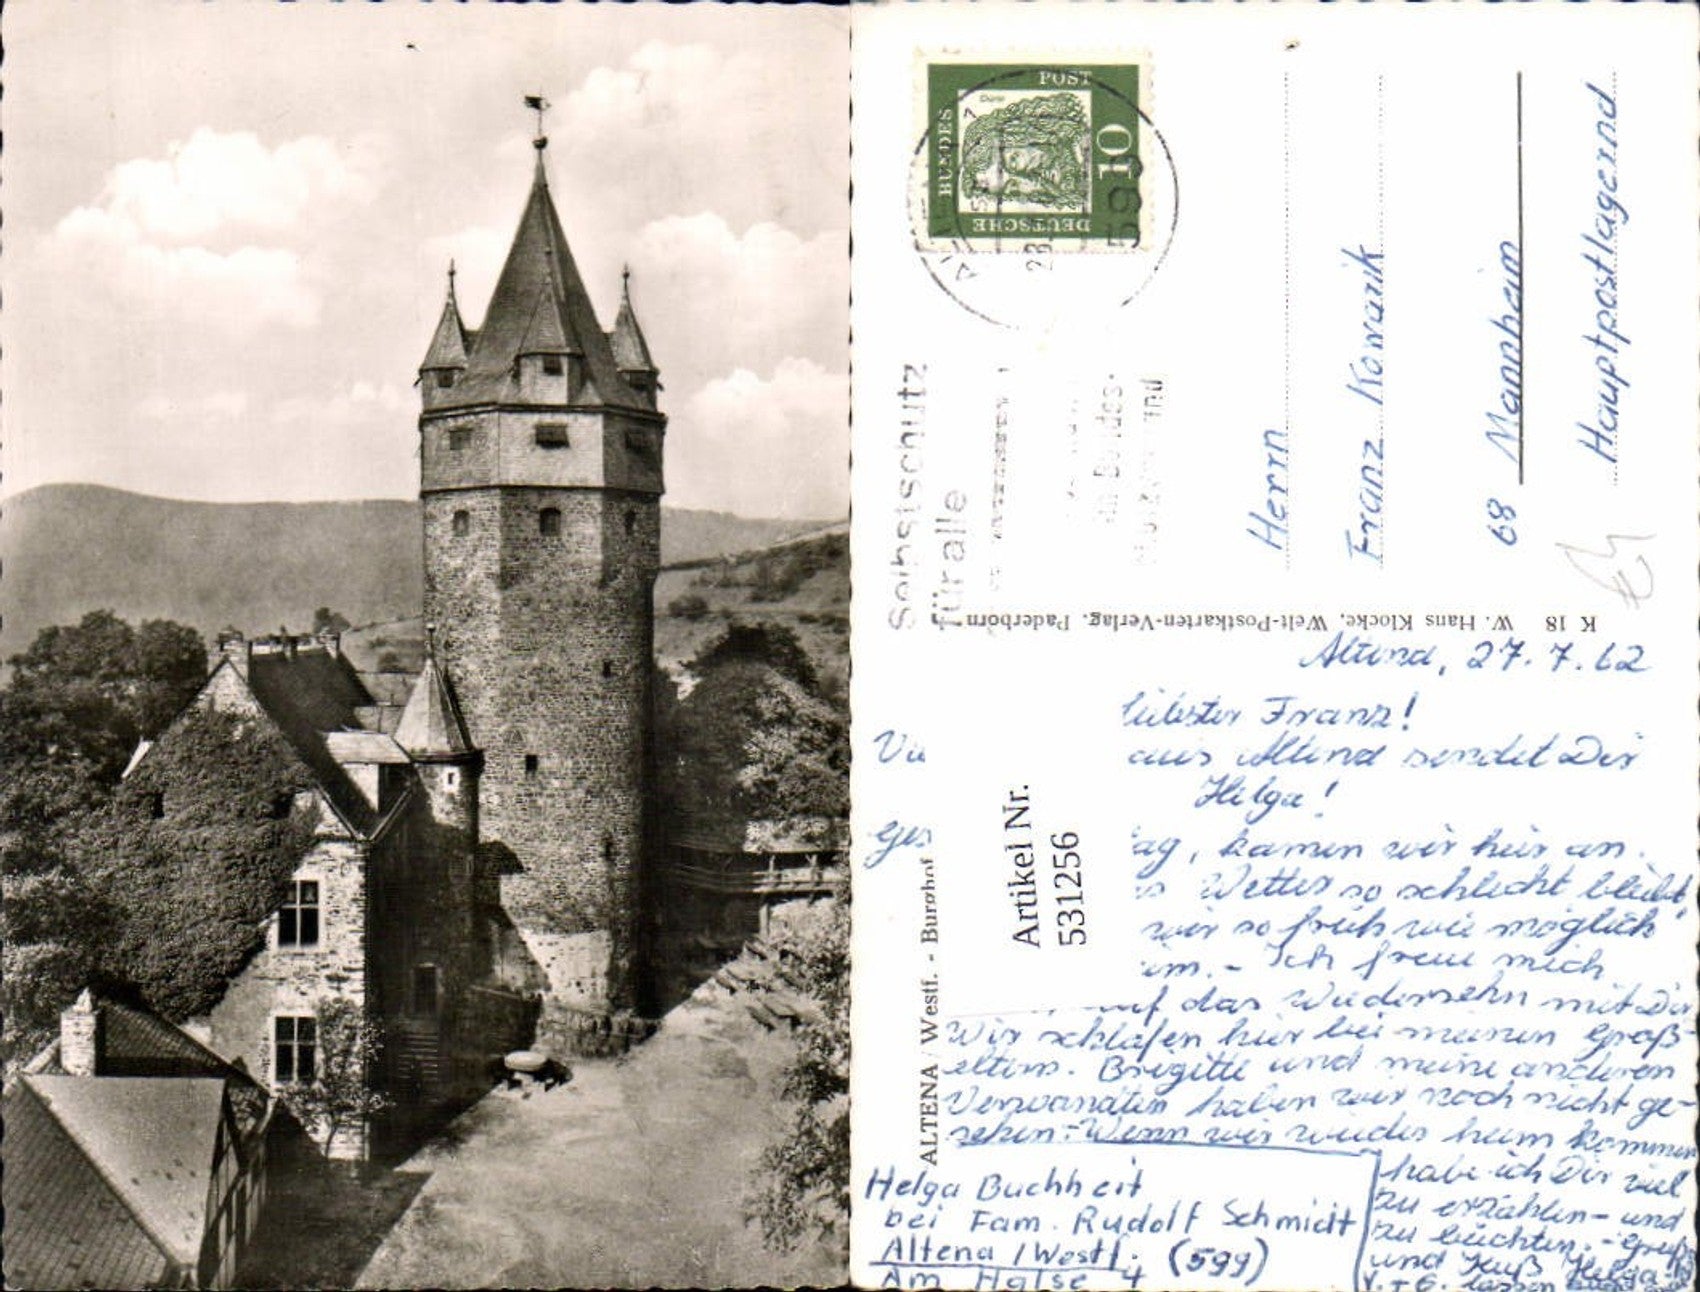 DEUTSCHE
BUNDES
POST
10
Dürer
599
Selbstschutz
für alle
im Bundes-
Herrn
Franz Kowarik
68 Mannheim
Hauptpostlagernd
K 18 W. Hans Klocke, Welt-Postkarten-Verlag, Paderborn
ALTENA / Westf. - Burghof
Artikel Nr.
531256
Altena, 27.7.62
Liebster Franz!
aus Altena sendet Dir
Helga!
Ges ag, kamen wir hier an.
Wetter so schlecht bleibt,
wir so früh wie möglich
Ich freue mich
auf das Wiedersehn mit Dir
Wir schlafen hier bei meinen Groß-
eltern. Brigitte und meine anderen
Verwandten haben wir noch nicht ge-
sehen. Wenn wir wieder heim kommen
habe ich Dir viel
zu erzählen - und
zu beichten. - Gruß
und Kuß Helga
V. + G. lassen
Helga Buchheit
bei Fam. Rudolf Schmidt
Altena / Westf. (599)
Am Halse 4